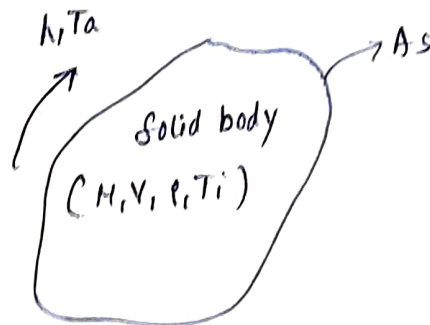 h,Ta
As
Solid body
(M,V,ρ,Ti)